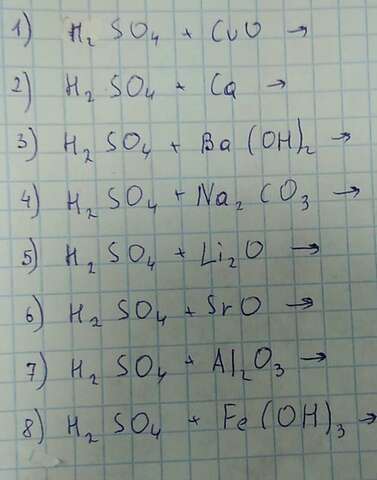 1) H₂SO₄ + CuO →
2) H₂SO₄ + Ca →
3) H₂SO₄ + Ba(OH)₂ →
4) H₂SO₄ + Na₂CO₃ →
5) H₂SO₄ + Li₂O →
6) H₂SO₄ + SrO →
7) H₂SO₄ + Al₂O₃ →
8) H₂SO₄ + Fe(OH)₃ →